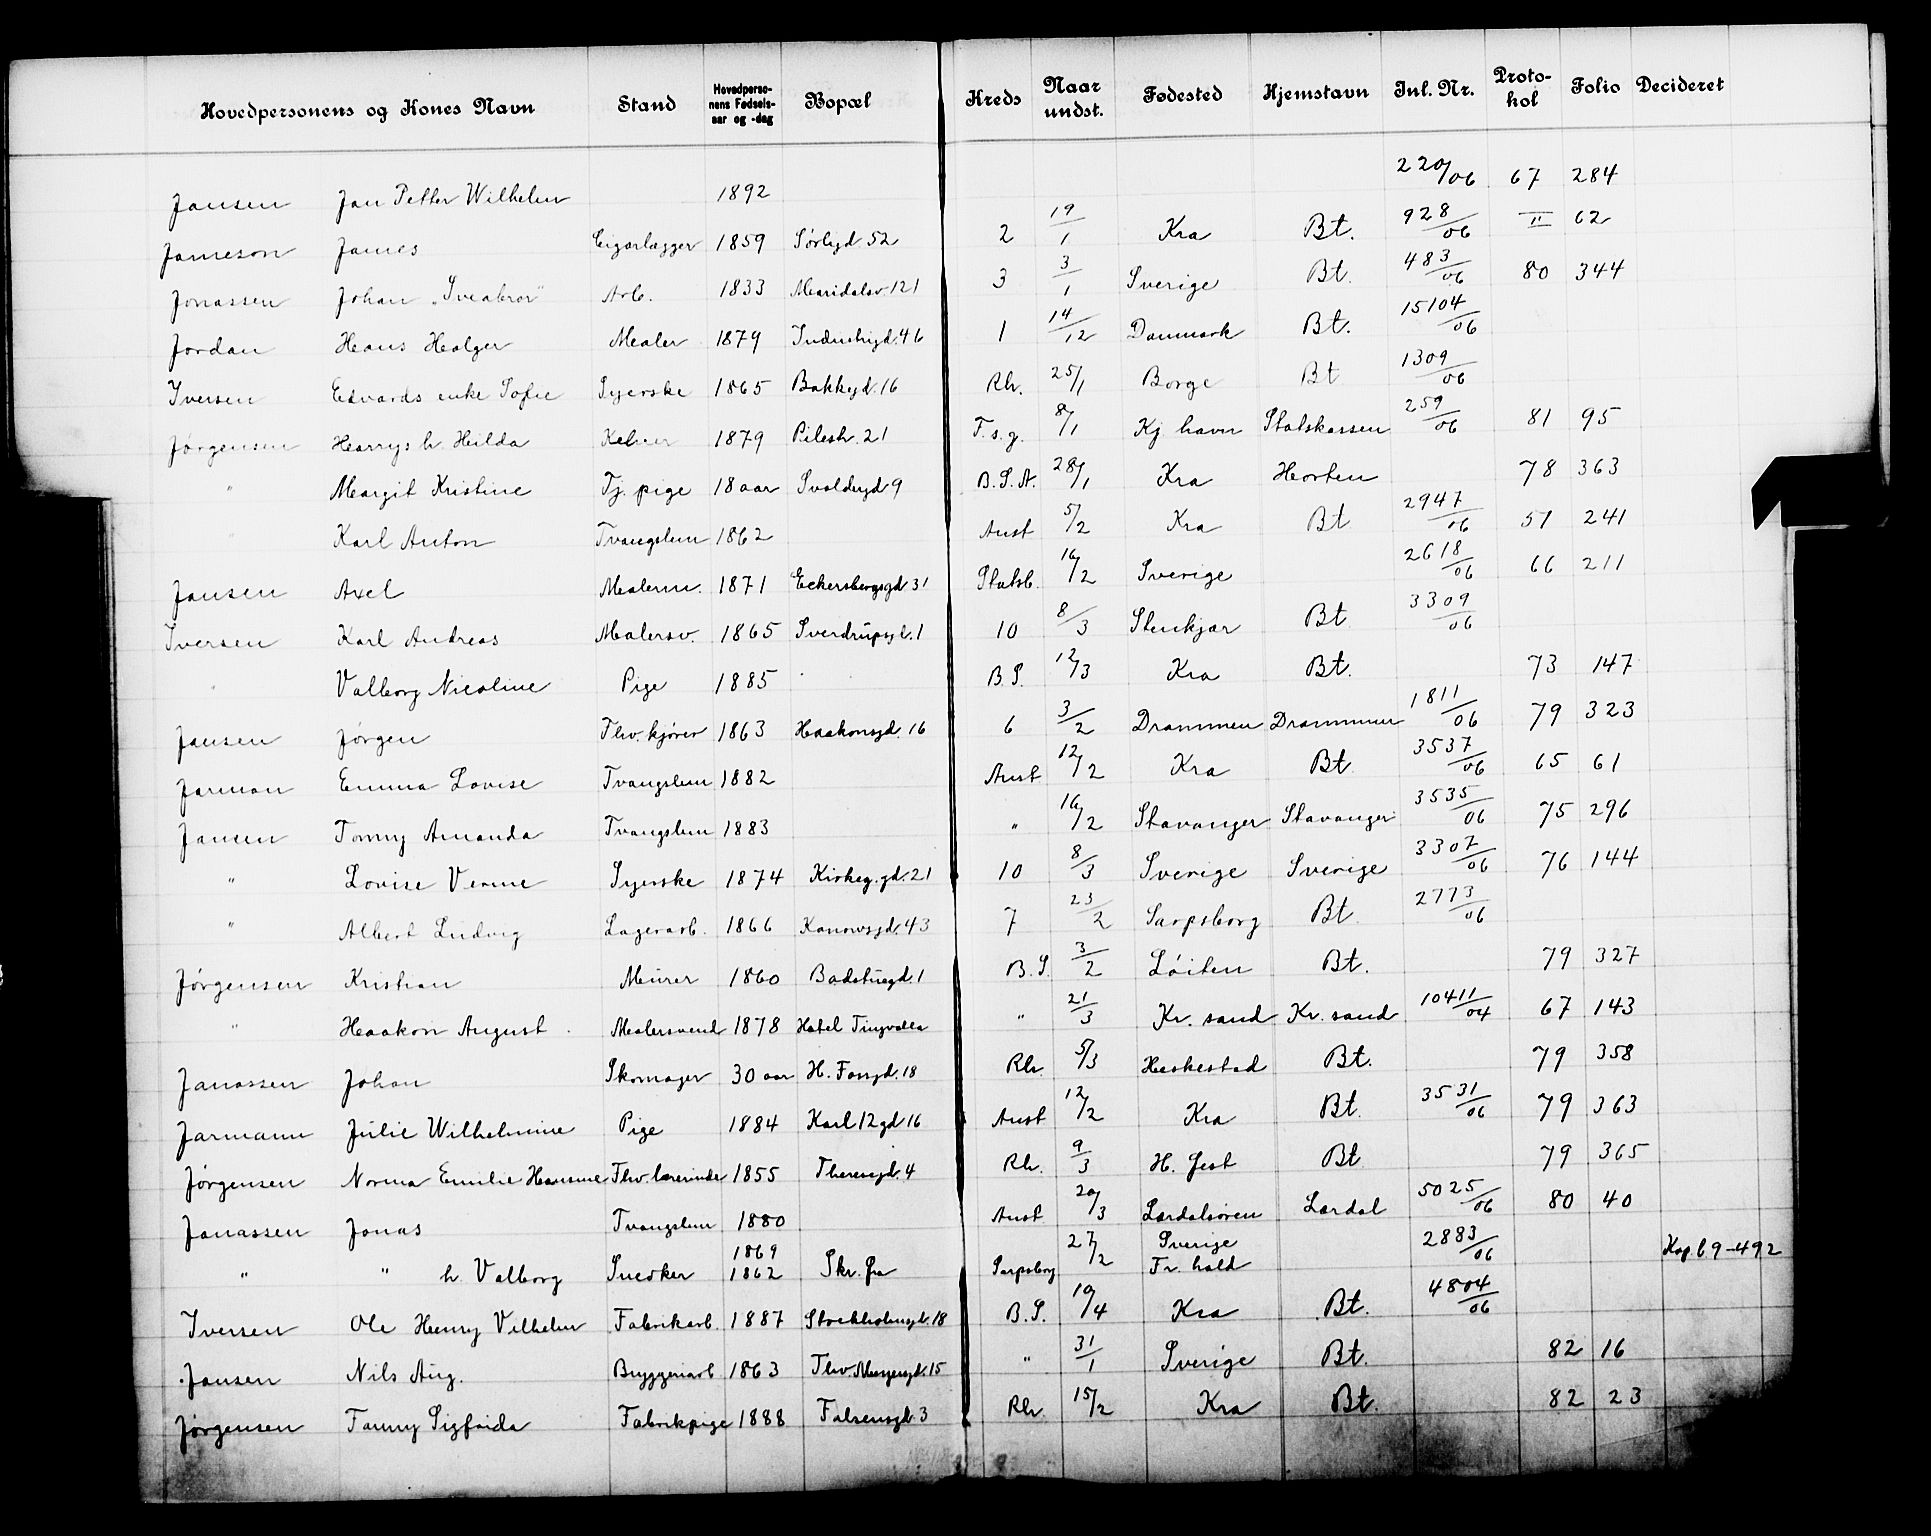 Hovedpersonens og Kones Navn Stand Hovedpersonens Fødselsaar og -dag Bopæl Kreds Naar undst. Fødested Hjemstavn Jnl. Nr. Protokol Folio Decideret
Jansen Jan Petter Wilhelm 1892 220/06 67 284
Jameson James Cigarlægger 1859 Sørbgd 52 2 19/1 Kra Bt. 928/06 II 62
Jonassen Johan „Sveabror" Arb. 1833 Maridalsv. 121 3 3/1 Sverige Bt. 483/06 80 344
Jordan Hans Holger Maler 1879 Industrigd. 46 1 14/12 Danmark Bt. 15104/06
Iversen Edvards enke Sofie Syerske 1865 Bakkegd. 16 Rh. 25/1 Borge Bt 1309/06
Jørgensen Harrys h. Hilda Kelner 1879 Pilestr. 21 F.s.g. 8/1 Kj.havn Statskassen 259/06 81 95
" Margit Kristine Tj. pige 18 aar Svoldergd 9 B.S.A. 28/1 Kra Horten 78 363
Karl Anton Tvangslem 1862 Anst 5/2 Kra Bt 2947/06 51 241
Jansen Axel Malerm. 1871 Eckersbergsgd 31 Statsb. 16/2 Sverige 2618/06 66 211
Iversen Karl Andreas Malersv. 1865 Sverdrupsgt. 1 10 8/3 Stenkjær Bt 3309/06
" Valborg Nicoline Pige 1885 B.S. 12/3 Kra Bt. 73 147
Jansen Jørgen Fhv. kjører 1863 Haakonsgd. 16 6 3/2 Drammen Drammen 1811/06 79 323
Jarman Emma Lovise Tvangslem 1882 Anst 12/2 Kra Bt 3537/06 65 61
Jansen Tomny Amanda Tvangslem 1883 " 16/2 Stavanger Stavanger 3535/06 75 296
" Lovise Verine Syerske 1874 Kirkeg.gd. 21 10 8/3 Sverige Sverige 3307/06 76 144
" Albert Ludvig Lagerarb. 1866 Kanowsgd. 43 7 23/2 Sarpsborg Bt 2773/06
Jørgensen Kristian Murer 1860 Badstuegd. 1 B.S. 3/2 Løiten Bt. 79 327
" Haakon August Malersvend 1878 Hotel Tingvalla " 21/3 Kr. sand Kr. sand 10411/04 67 143
Janassen Johan Skomager 30 aar H. Fossgd. 18 Rh. 5/3 Heskestad Bt. 79 358
Jarmann Julie Wilhelmine Pige 1884 Karl 12 gd 16 Anst 12/2 Kra Bt. 3531/06 79 363
Jørgensen Norma Emilie Hansine Fhv. lærerinde 1855 Theresegd. 4 Rh. 9/3 H. Jest Bt 79 365
Jonassen Jonas Tvangslem 1880 Anst 20/3 Lærdalsøren Lærdal 5025/06 80 40
" " h. Valborg Snedker 1869 1862 Skr. fra Sarpsborg 27/2 Sverige Fr. hald 2883/06 Kop. 69-492
Iversen Ole Henry Vilhelm Fabrikarb. 1887 Stockholmsgt. 18 B.S. 10/4 Kra Bt. 4804/06
Jansen Nils Aug. Bryggeriarb 1863 Thv. Meyersgd. 15 " 31/1 Sverige Bt. 82 16
Jørgensen Fanny Sigfrida Fabrikpige 1888 Falsensgd. 3 Rh. 15/2 Kra Bt. 82 23